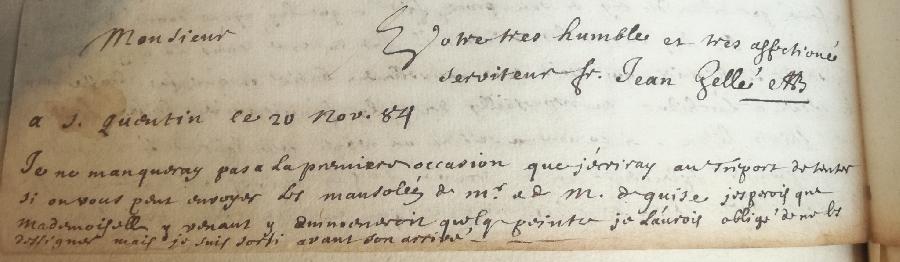 Monsieur
Votre tres humble et tres affectioné
serviteur fr. Jean Gellé
a S. Quentin le 20 Nov. 84
Je ne manqueray pas a la premiere occasion que j'écriray au Tréport de tenter
si on vous peut envoyer les mausolées de mr. et de M. de guise j'esperois que
Mademoiselle y venant y emmeneroit quelq peintre je l'aurois obligé de me les
dessigner mais je suis sorti avant son arrivé